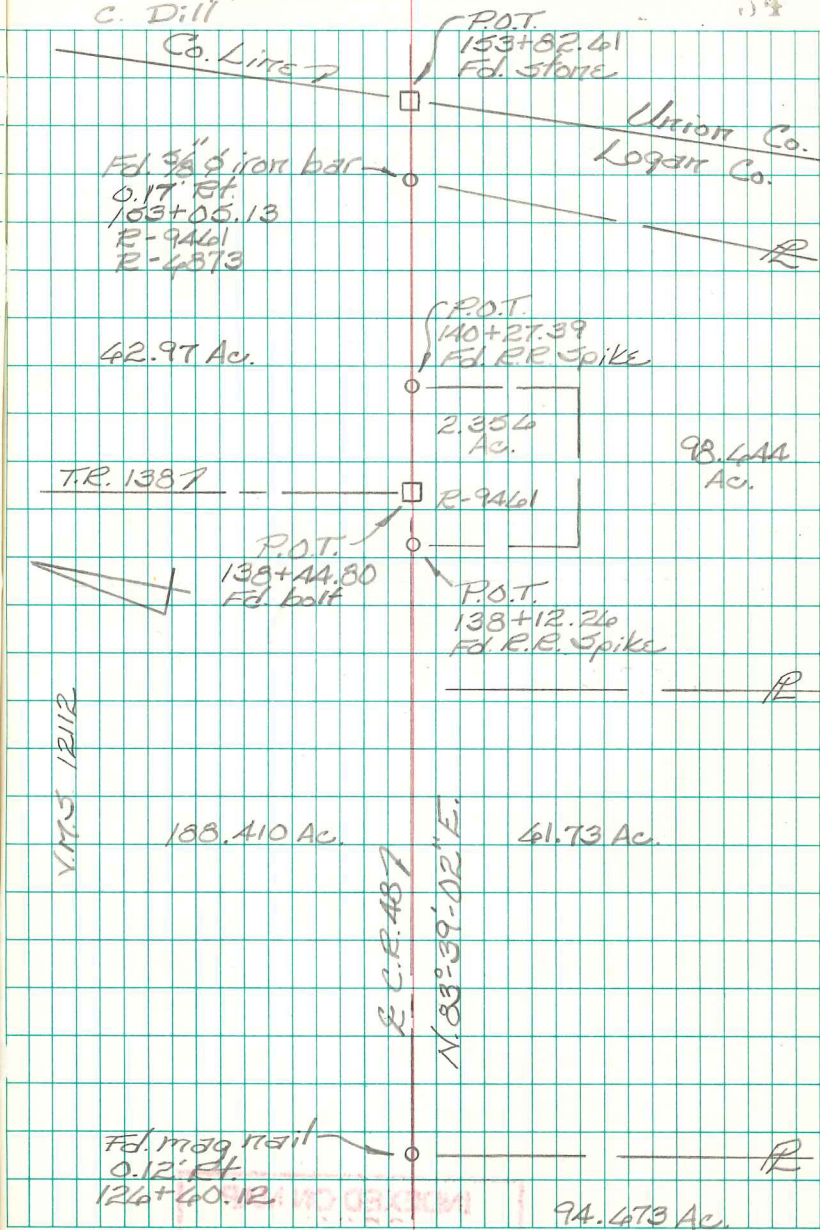 C. Dill
P.O.T.
153+82.61
Fd. stone
Co. Line
Union Co.
Logan Co.
Fd. 5/8" ϕ iron bar
0.17' Rt.
153+05.13
R-9461
R-4873
PL
P.O.T.
140+27.39
Fd. R.R. Spike
42.97 Ac.
2.356
Ac.
98.644
Ac.
T.R. 138
R-9461
P.O.T.
138+44.80
Fd. bolt
P.O.T.
138+12.26
Fd. R.R. Spike
PL
V.M.S. 12112
188.410 Ac.
61.73 Ac.
℄ C.R. 48
N.83°-39'-02"E.
Fd. mag nail
0.12' Rt.
126+60.12
PL
94.673 Ac.